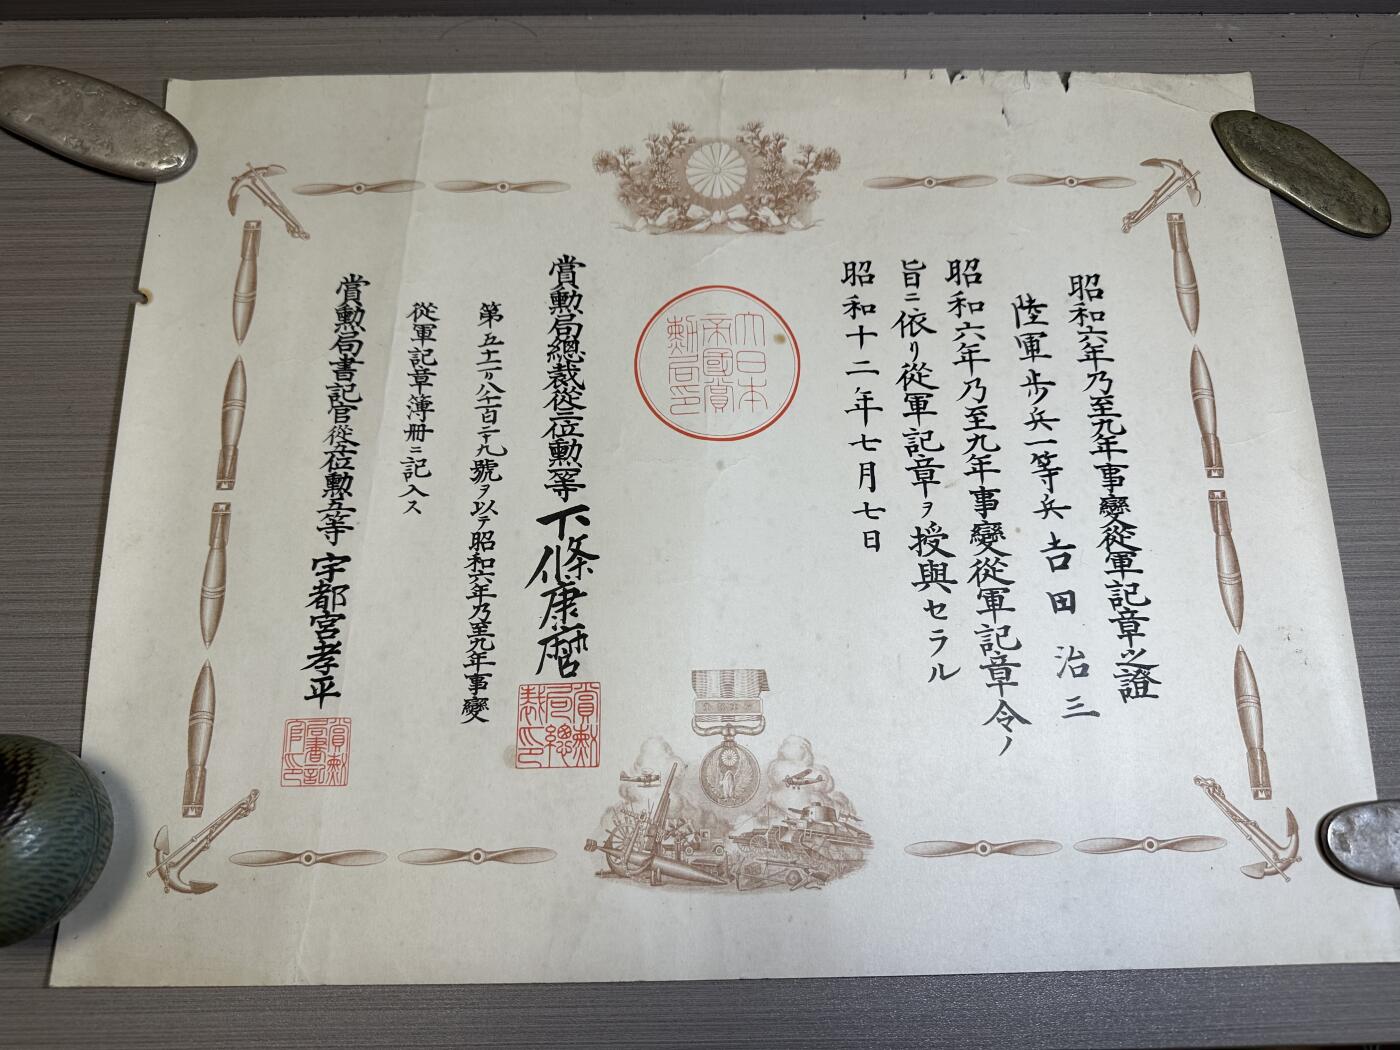 昭和六年乃至九年事變從軍記章之證
陸軍歩兵一等兵吉田治三
昭和六年乃至九年事變從軍記章令ノ
旨ニ依リ從軍記章ヲ授與セラル
昭和十二年七月七日
大日本
帝國賞
勳局印
賞勳局總裁從三位勳一等下條康麿
賞勳
局總
裁印
第五十一万八千百二十九號ヲ以テ昭和六年乃至九年事變
從軍記章簿冊ニ記入ス
賞勳局書記官從五位勳五等宇都宮孝平
賞勳
局書記
官印